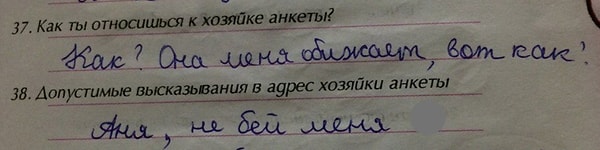 37. Как ты относишься к хозяйке анкеты?
Как? Она меня обижает, вот как!
38. Допустимые высказывания в адрес хозяйки анкеты
Аня, не бей меня